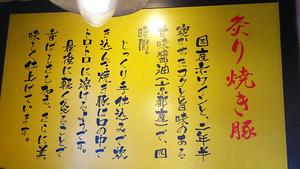 炙り焼き豚
国産赤ワインと、二年半
寝かせたコクと旨味のある
甘味醤油(京都産)で、四
時間。
じっくり手仕込みで炊
き込んで焼き豚に口の中で
トロトロに溶けるようです。
最後に軽く炙ることで
香ばしさも加き、さらに美
味しく仕上げています。